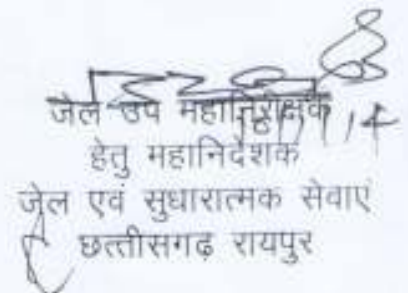 जेल उप महानिरीक्षक
हेतु महानिदेशक
जेल एवं सुधारात्मक सेवाएं
छत्तीसगढ़ रायपुर